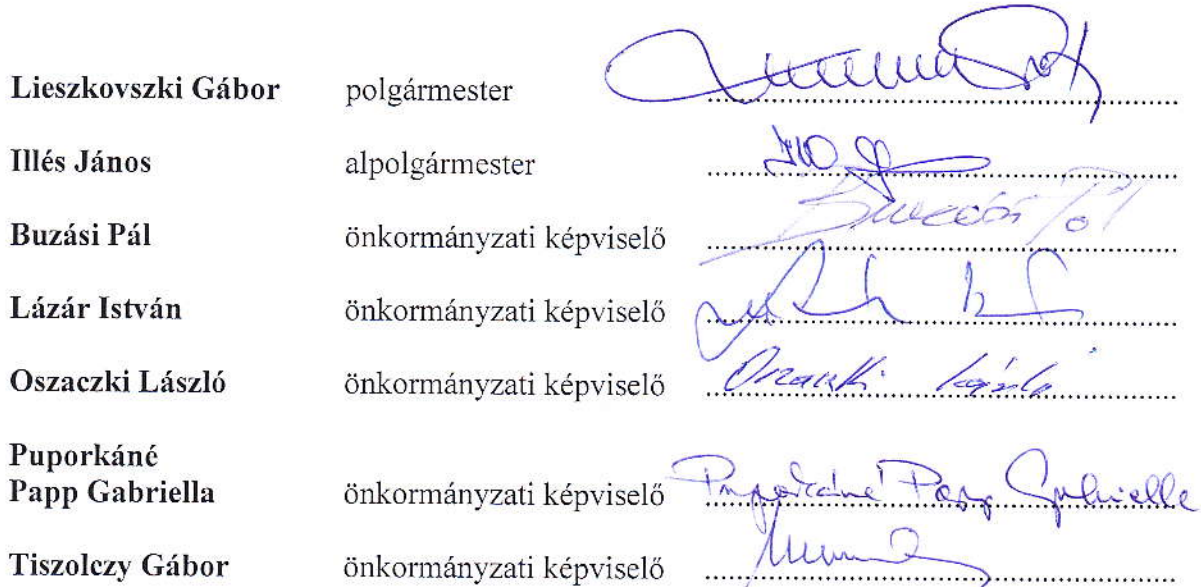 Lieszkovszki Gábor polgármester
Illés János alpolgármester
Buzási Pál önkormányzati képviselő Buzási Pál
Lázár István önkormányzati képviselő
Oszaczki László önkormányzati képviselő Oszaczki László
Puporkáné
Papp Gabriella önkormányzati képviselő Puporkáné Papp Gabriella
Tiszolczy Gábor önkormányzati képviselő